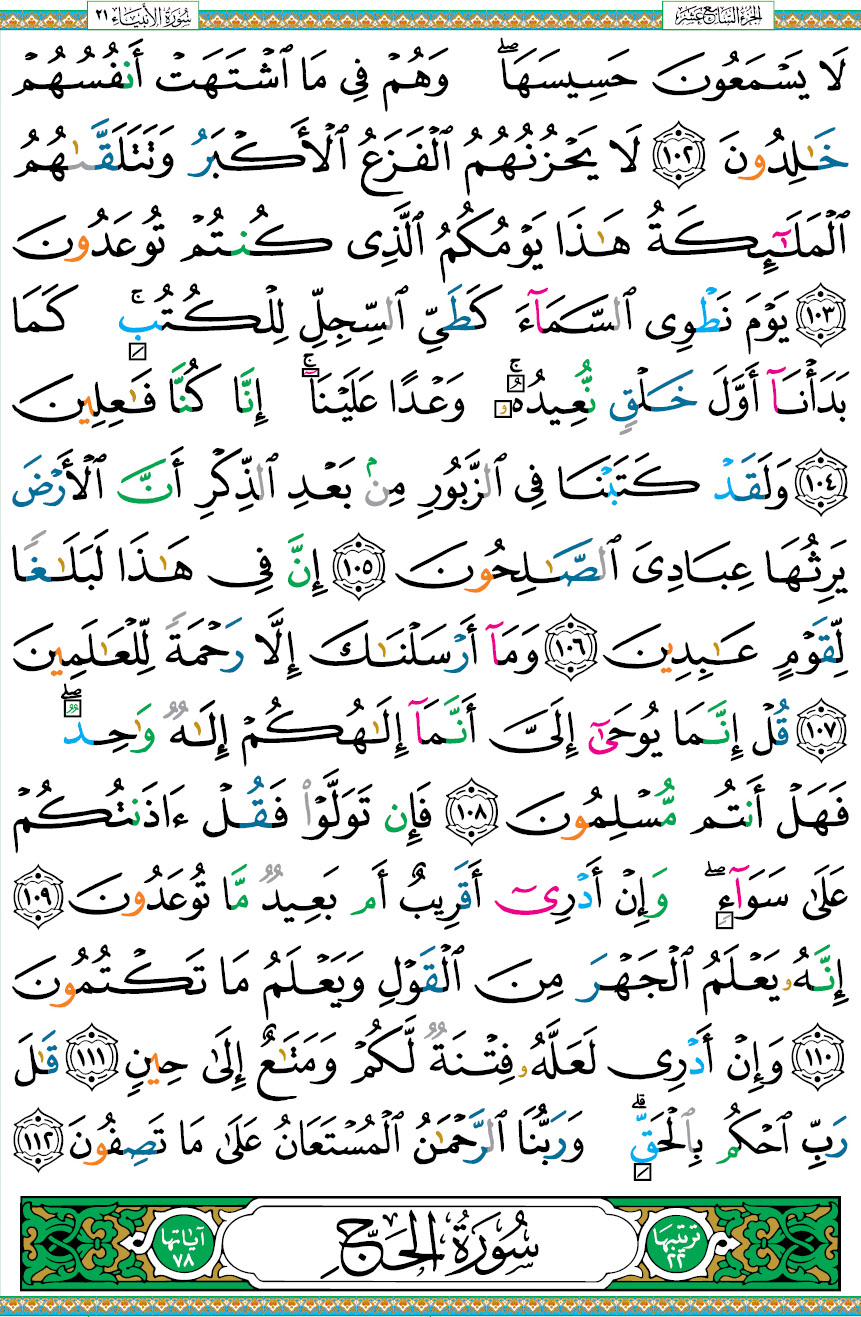 الجزء السابع عشر سورة الأنبياء ٢١
لَا يَسْمَعُونَ حَسِيسَهَا ۖ وَهُمْ فِي مَا ٱشْتَهَتْ أَنفُسُهُمْ
خَـٰلِدُونَ ١٠٢ لَا يَحْزُنُهُمُ ٱلْفَزَعُ ٱلْأَكْبَرُ وَتَتَلَقَّىٰهُمُ
ٱلْمَلَـٰٓئِكَةُ هَـٰذَا يَوْمُكُمُ ٱلَّذِى كُنتُمْ تُوعَدُونَ
١٠٣ يَوْمَ نَطْوِى ٱلسَّمَآءَ كَطَىِّ ٱلسِّجِلِّ لِلْكُتُبِ ۚ كَمَا
بَدَأْنَآ أَوَّلَ خَلْقٍ نُّعِيدُهُۥ ۚ وَعْدًا عَلَيْنَآ ۚ إِنَّا كُنَّا فَـٰعِلِينَ
١٠٤ وَلَقَدْ كَتَبْنَا فِى ٱلزَّبُورِ مِنۢ بَعْدِ ٱلذِّكْرِ أَنَّ ٱلْأَرْضَ
يَرِثُهَا عِبَادِىَ ٱلصَّـٰلِحُونَ ١٠٥ إِنَّ فِى هَـٰذَا لَبَلَـٰغًا
لِّقَوْمٍ عَـٰبِدِينَ ١٠٦ وَمَآ أَرْسَلْنَـٰكَ إِلَّا رَحْمَةً لِّلْعَـٰلَمِينَ
١٠٧ قُلْ إِنَّمَا يُوحَىٰٓ إِلَىَّ أَنَّمَآ إِلَـٰهُكُمْ إِلَـٰهٌ وَٰحِدٌ ۖ
فَهَلْ أَنتُم مُّسْلِمُونَ ١٠٨ فَإِن تَوَلَّوْا۟ فَقُلْ ءَاذَنتُكُمْ
عَلَىٰ سَوَآءٍ ۖ وَإِنْ أَدْرِىٓ أَقَرِيبٌ أَم بَعِيدٌ مَّا تُوعَدُونَ ١٠٩
إِنَّهُۥ يَعْلَمُ ٱلْجَهْرَ مِنَ ٱلْقَوْلِ وَيَعْلَمُ مَا تَكْتُمُونَ
١١٠ وَإِنْ أَدْرِى لَعَلَّهُۥ فِتْنَةٌ لَّكُمْ وَمَتَـٰعٌ إِلَىٰ حِينٍ ١١١ قَـٰلَ
رَبِّ ٱحْكُم بِٱلْحَقِّ ۗ وَرَبُّنَا ٱلرَّحْمَـٰنُ ٱلْمُسْتَعَانُ عَلَىٰ مَا تَصِفُونَ ١١٢
ترتيبها ٢٢ سُورَةُ الحَجِّ آياتها ٧٨